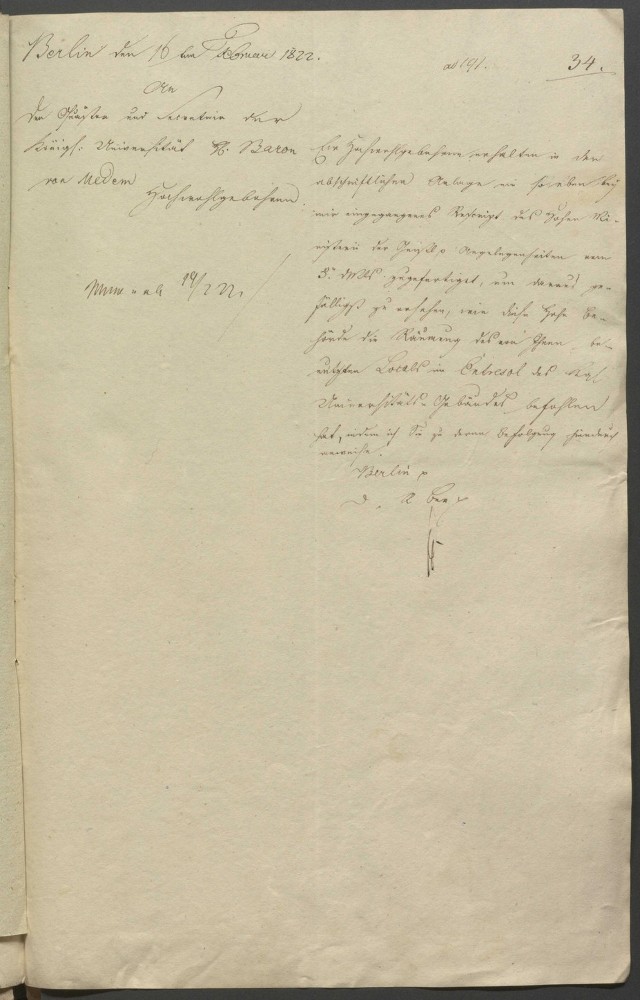 Berlin den 16ten Februar 1822.
ad 191.
34.
An
den Quästor und Secretair der
Königl: Universität H. Baron
von Medem
Hochwohlgebohren
Ew Hochwohlgebohren erhalten in der
abschriftlichen Anlage ein so eben bey
mir eingegangenes Rescript des Hohen Mi-
nisterii der Geistl. p Angelegenheiten vom
5. d Mts. zugefertiget, um daraus ge-
fälligst zu ersehen, wie diese hohe Be-
hörde die Räumung des von Ihnen be-
nutzten Locals im Entresol des Kgl
Universitäts-Gebäudes befohlen
hat, indem ich Sie zu deren Befolgung hierdurch
anweise.
Berlin p
D. R Bev
19/2 22